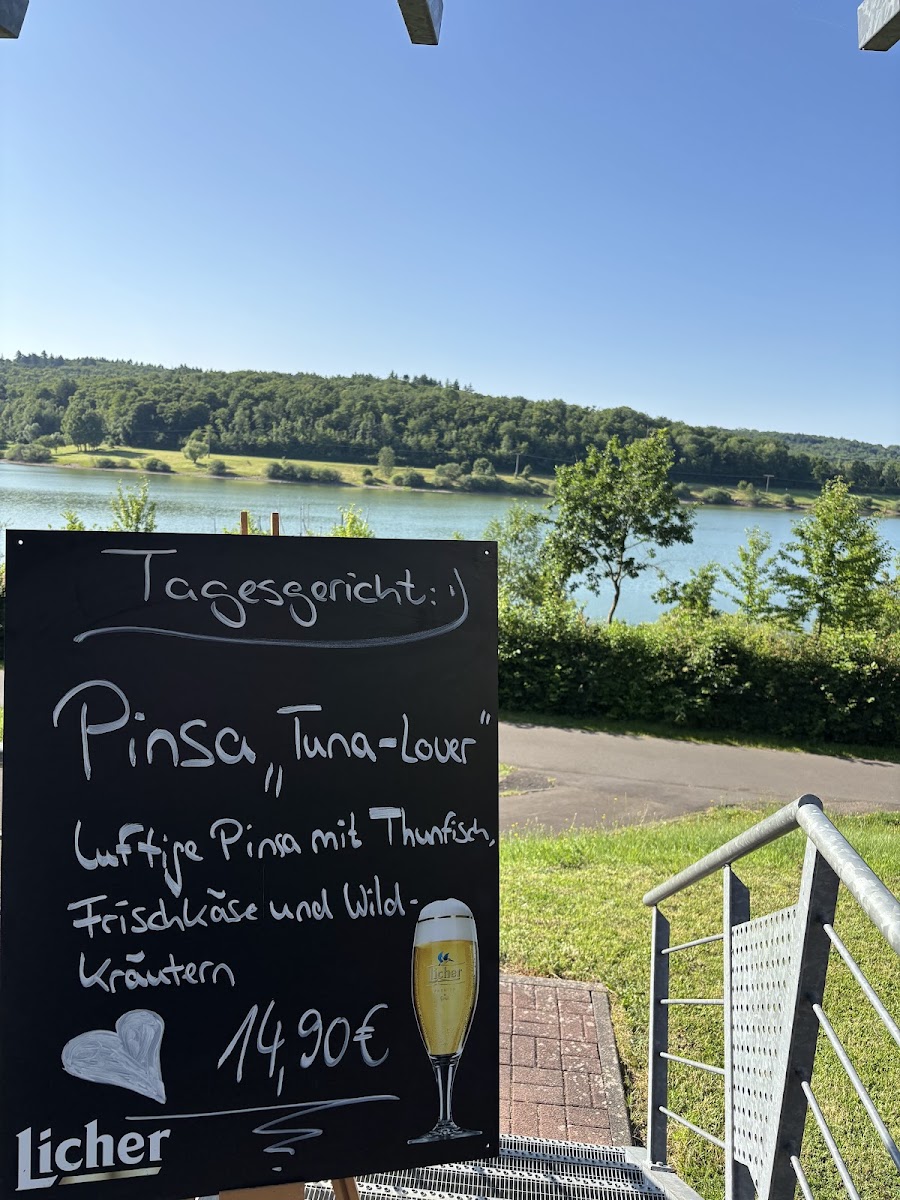 Tagesgericht:
Pinsa „Tuna-Lover"
luftige Pinsa mit Thunfisch,
Frischkäse und Wild-
Kräutern
14,90€
Licher
Licher